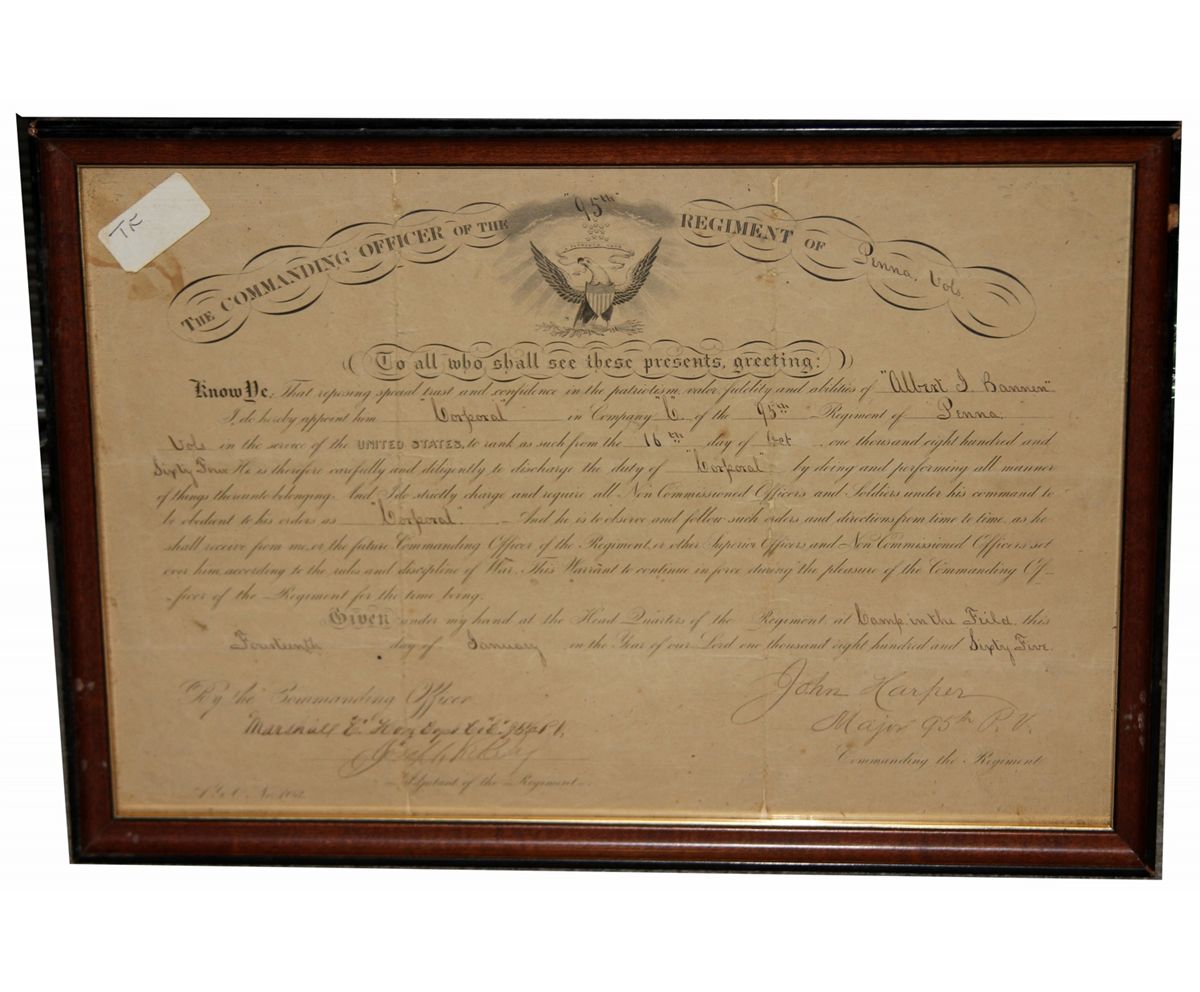 TE
"95th"
THE COMMANDING OFFICER OF THE REGIMENT OF Penna. Vols.
To all who shall see these presents, greeting:
Know Ye, That reposing special trust and confidence in the patriotism, valor, fidelity and abilities of "Albert I. Bannen"
I do hereby appoint him "Corporal" in Company "C" of the 95th Regiment of Penna.
Vols in the service of the UNITED STATES, to rank as such from the 16th day of Oct one thousand eight hundred and
Sixty Four He is therefore carefully and diligently to discharge the duty of "Corporal" by doing and performing all manner
of things thereunto belonging. And I do strictly charge and require all Non Commissioned Officers and Soldiers under his command to
be obedient to his orders as "Corporal." And he is to observe and follow such orders and directions from time to time, as he
shall receive from me, or the future Commanding Officer of the Regiment, or other Superior Officers and Non Commissioned Officers set
over him, according to the rules and discipline of War. This Warrant to continue in force during the pleasure of the Commanding Of-
ficer of the Regiment for the time being.
Given under my hand at the Head Quarters of the Regiment, at Camp in the Field this
Fourteenth day of January in the Year of our Lord one thousand eight hundred and Sixty Five.
By the Commanding Officer
John Harper
Major 95th P.V.
Marshall
Commanding the Regiment
Adjutant of the Regiment.